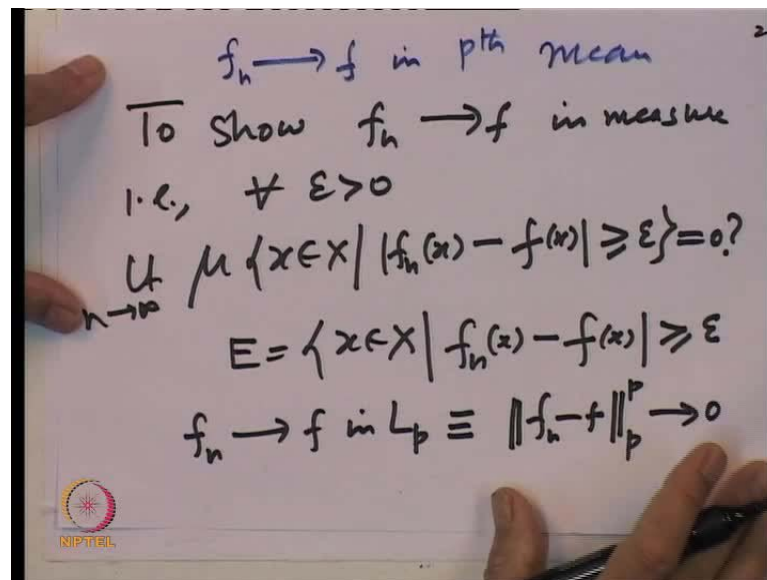 2
fₙ → f in pᵗʰ mean
To show fₙ → f in measure
i.e., ∀ ε>0
Lt n→∞ μ {x∈X | |fₙ(x) − f(x)| ≥ ε}=0?
E = {x∈X | fₙ(x) − f(x)| ≥ ε
fₙ → f in Lₚ ≡ ‖fₙ−f‖ₚᵖ → 0
NPTEL